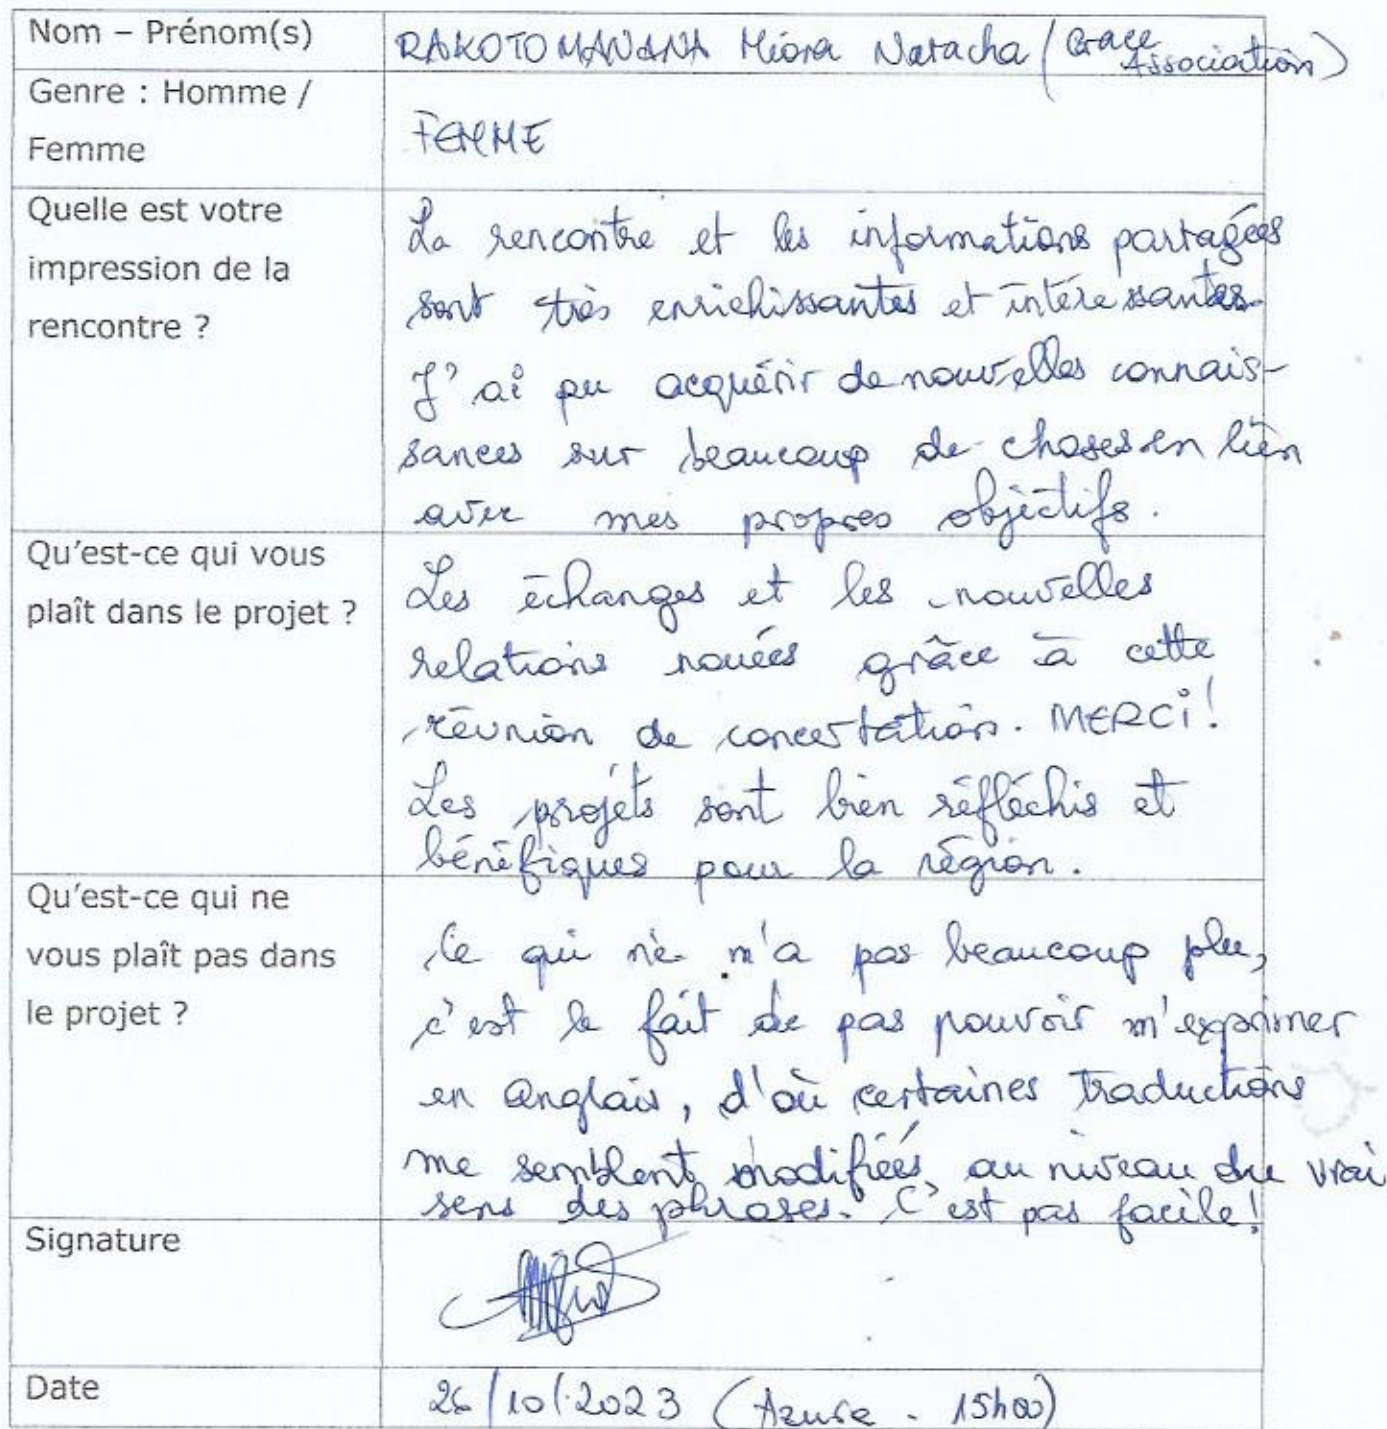 Nom – Prénom(s)
RAKOTOMANANA Miora Natacha (Grace Association)
Genre : Homme /
Femme
FEMME
Quelle est votre
impression de la
rencontre ?
La rencontre et les informations partagées
sont très enrichissantes et intéressantes.
J'ai pu acquérir de nouvelles connais-
sances sur beaucoup de choses en lien
avec mes propres objectifs.
Qu'est-ce qui vous
plaît dans le projet ?
Les échanges et les nouvelles
relations nouées grâce à cette
réunion de concertation. MERCi!
Les projets sont bien réfléchis et
bénéfiques pour la région.
Qu'est-ce qui ne
vous plaît pas dans
le projet ?
Ce qui ne m'a pas beaucoup plu,
c'est le fait de pas pouvoir m'exprimer
en anglais, d'où certaines traductions
me semblent modifiées au niveau du vrai
sens des phrases. C'est pas facile!
Signature
Date
26/10/2023 (Azura - 15h00)